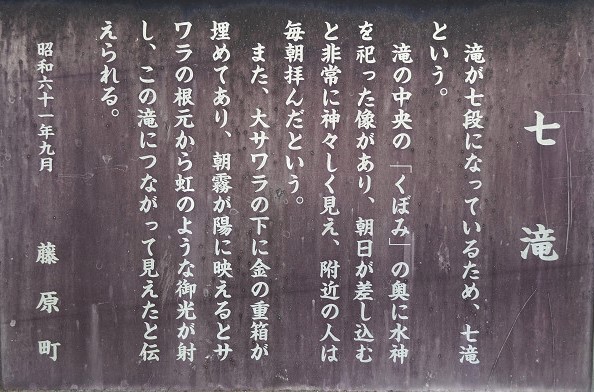 七滝
滝が七段になっているため、七滝
という。
滝の中央の「くぼみ」の奥に水神
を祀った像があり、朝日が差し込む
と非常に神々しく見え、附近の人は
毎朝拝んだという。
また、大サワラの下に金の重箱が
埋めてあり、朝霧が陽に映えるとサ
ワラの根元から虹のような御光が射
し、この滝につながって見えたと伝
えられる。
昭和六十一年九月
藤原町